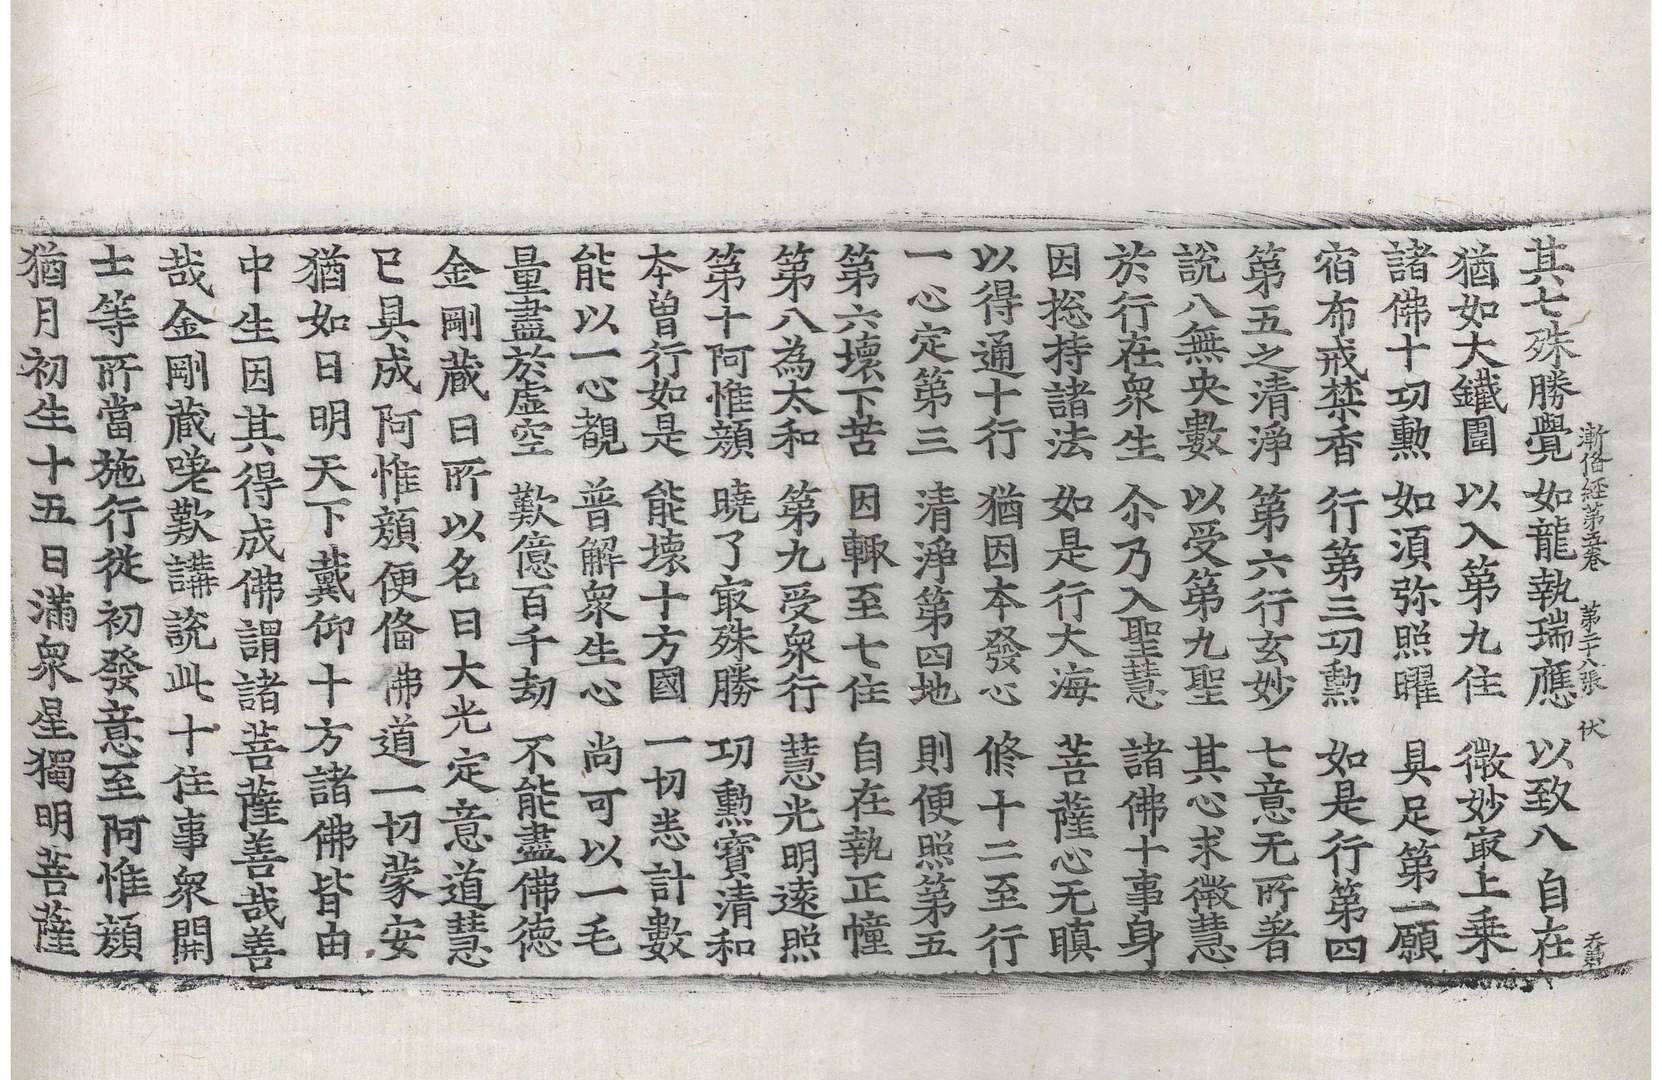 漸俻経第五卷 第二十八張 伏
其七殊勝覺 如龍執瑞應 以致八自在
猶如大鐵圍 以入第九住 微妙冣上乗
諸佛十功勲 如湏弥照曜 具足第一願
宿布戒禁香 行第三功勲 如是行第四
第五之清淨 第六行玄妙 七意无所著
說八無央數 以受第九聖 其心求微慧
於行在衆生 尒乃入聖慧 諸佛十事身
因捴持諸法 如是行大海 菩薩心无瞋
以得通十行 猶因本發心 修十二至行
一心定第三 清淨第四地 則便照第五
第六壞下苦 因輙至七住 自在執正幢
第八為太和 第九受衆行 慧光明遠照
第十阿惟顏 曉了冣殊勝 功勲寶清和
本曽行如是 能壞十方國 一切悉計數
能以一心覩 普解衆生心 尚可以一毛
量盡於虛空 歎億百千劫 不能盡佛德
金剛藏曰所以名曰大光定意道慧
已具成阿惟顏便俻佛道一切蒙安
猶如日明天下戴仰十方諸佛皆由
中生因其得成佛謂諸菩薩善哉善
哉金剛藏咾歎講說此十住事衆開
士等所當施行從初發意至阿惟顏
猶月初生十五日滿衆星獨明菩薩